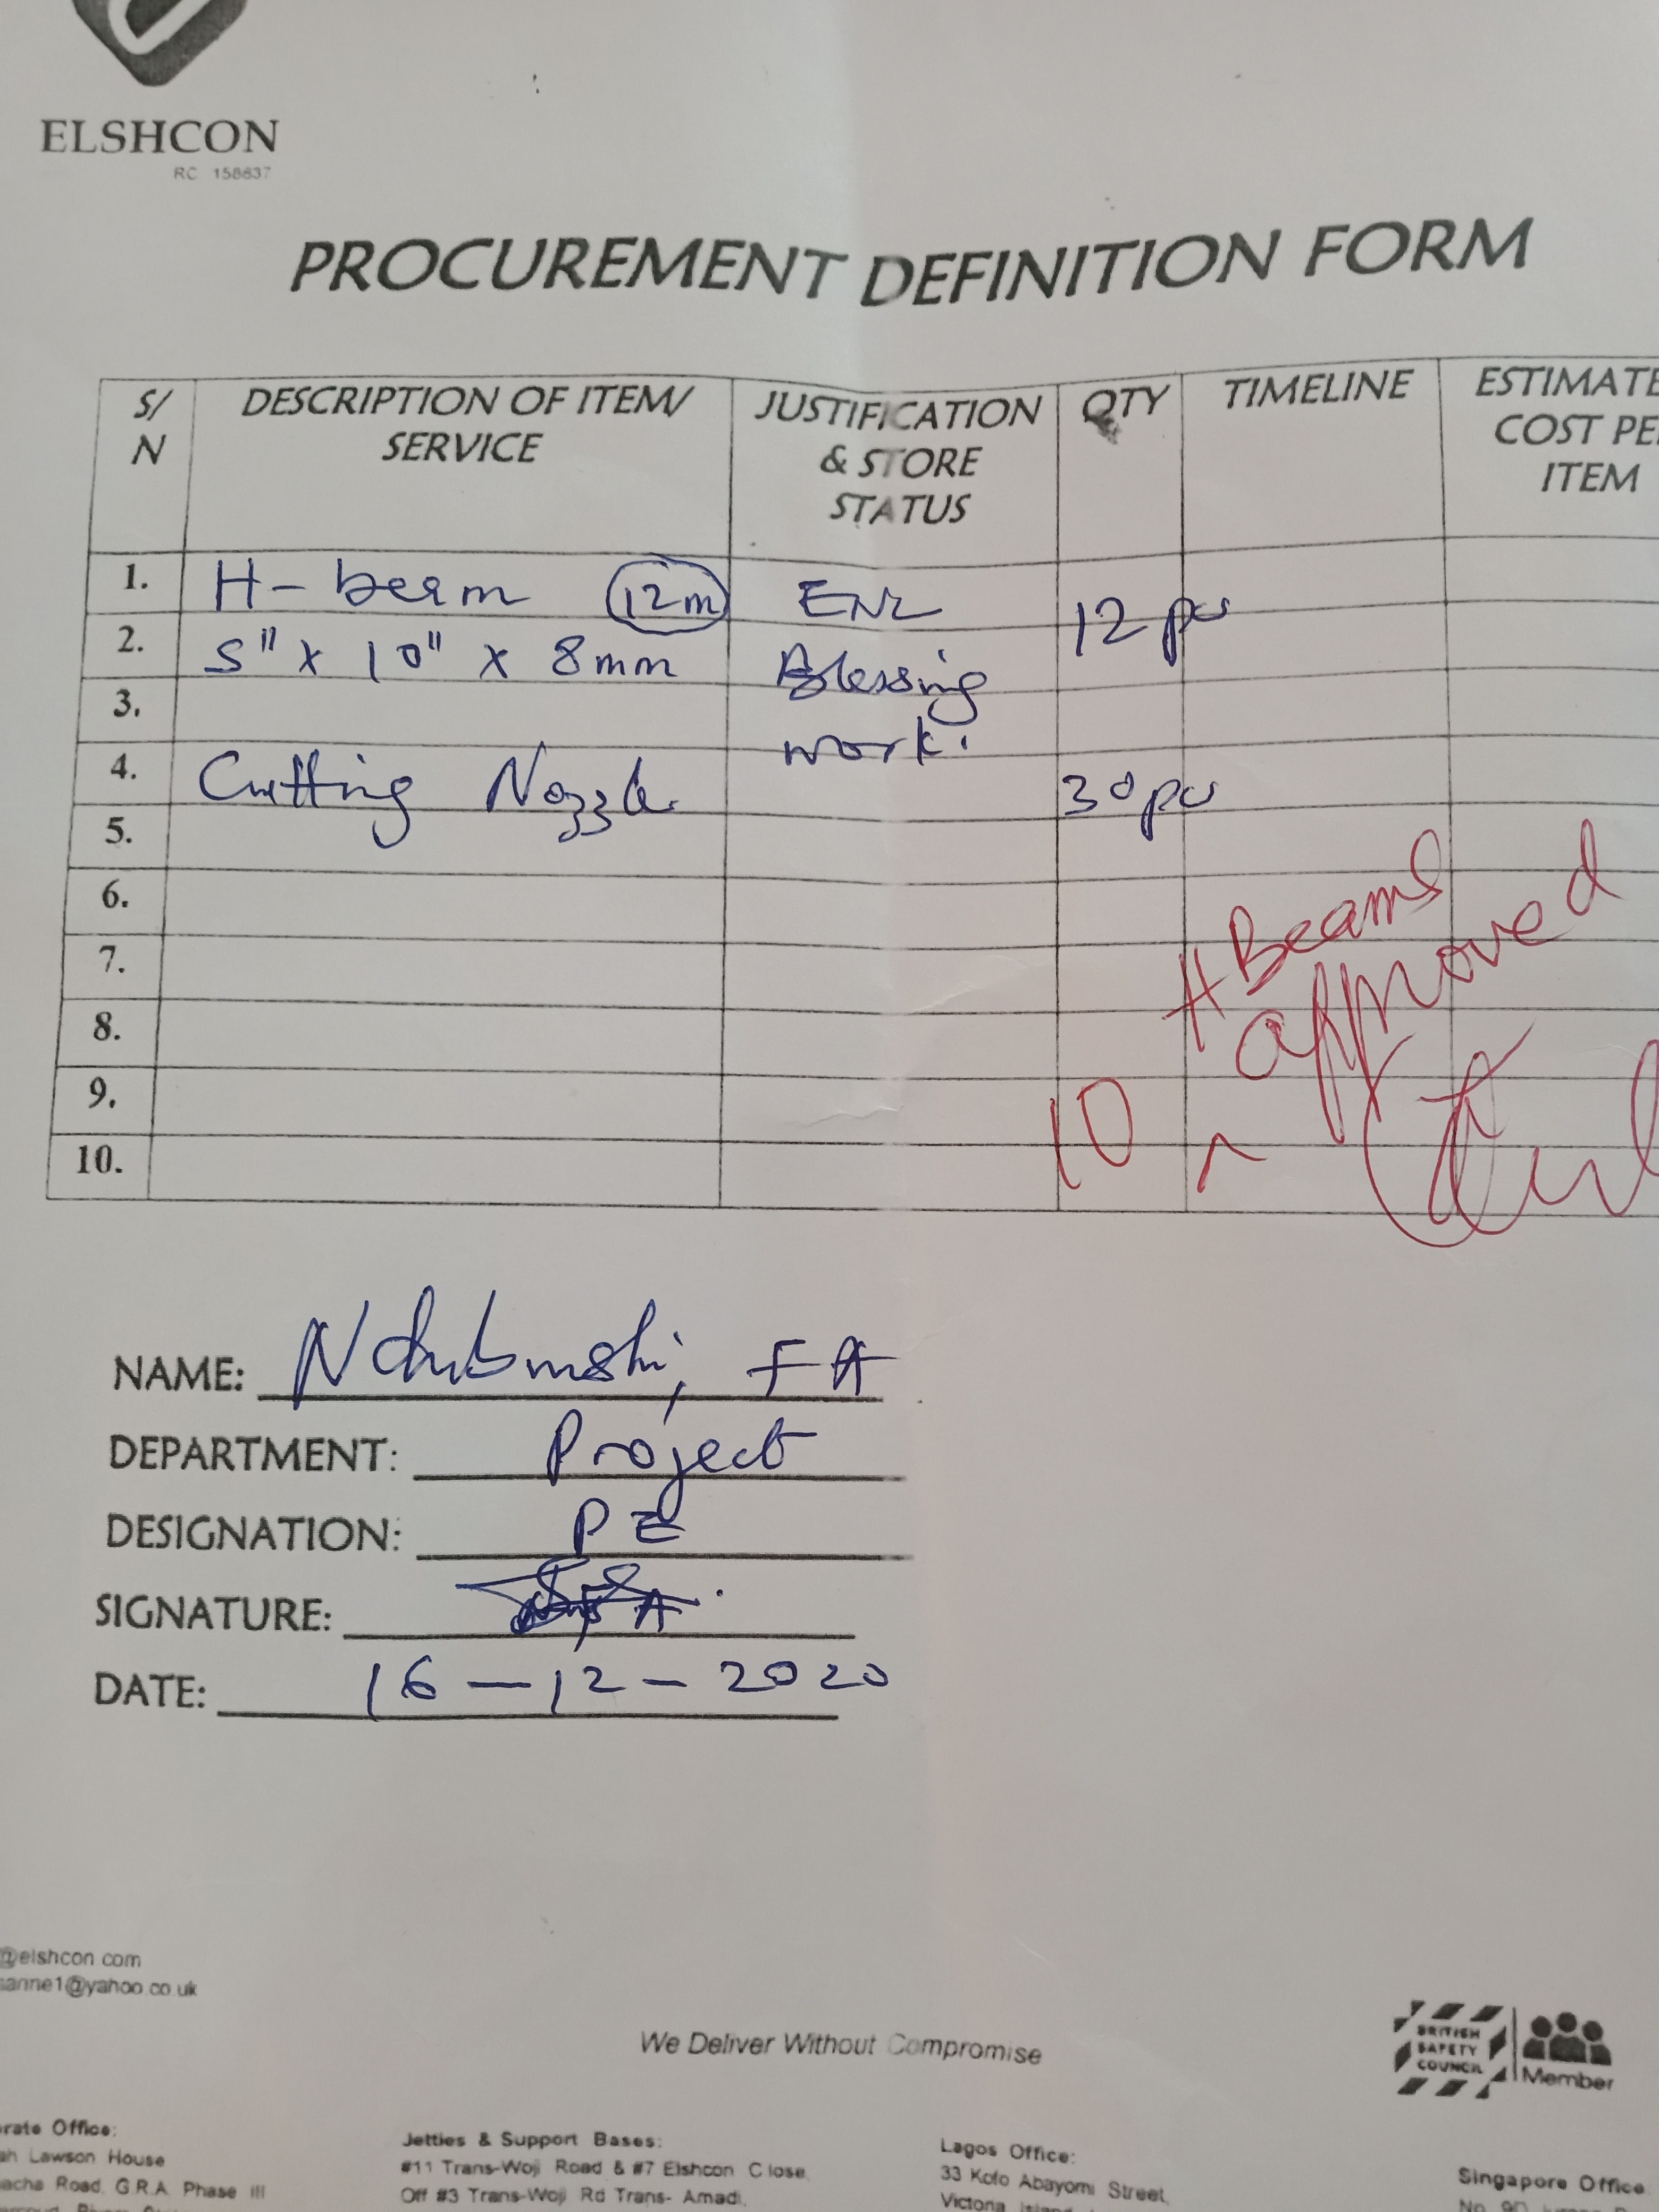 ELSHCON
RC 158837
PROCUREMENT DEFINITION FORM
S/N DESCRIPTION OF ITEM/ SERVICE JUSTIFICATION & STORE STATUS QTY TIMELINE ESTIMATE COST PE ITEM
1. H-beam 12m ENL 12 pcs
2. 5" x 10" x 8mm Blessing
3. work.
4. Cutting Nozzle 30pcs
5.
6.
H Beams
7.
approved
8.
9.
10
10.
NAME: Ndubuishi, FA
DEPARTMENT: Project
DESIGNATION: PE
SIGNATURE:
DATE: 16-12-2020
@elshcon.com
sanne1@yahoo.co.uk
We Deliver Without Compromise
BRITISH SAFETY COUNCIL Member
rate Office:
ah Lawson House
acha Road, G.R.A. Phase III
Jetties & Support Bases:
#11 Trans-Woji Road & #7 Elshcon Close,
Off #3 Trans-Woji Rd Trans- Amadi,
Lagos Office:
33 Kofo Abayomi Street,
Victoria Island
Singapore Office